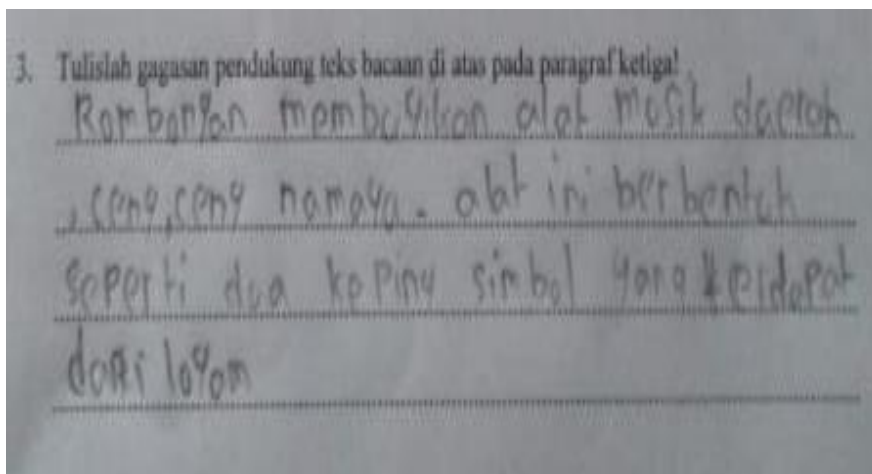 3. Tulislah gagasan pendukung teks bacaan di atas pada paragraf ketiga!
Rombongan membuyikan alat mosik daerah
, ceng, ceng namaya. alat ini berbentuh
seperti dua keping simbol yang terdapat
dari logam